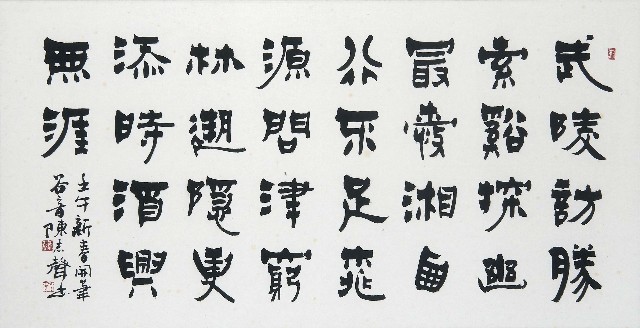 武陵訪勝
索谿探幽
最愛湘
不足桃
源問津窮
林遯隱更
添時酒興
無涯
壬午新春開筆
谷音陳志聲書